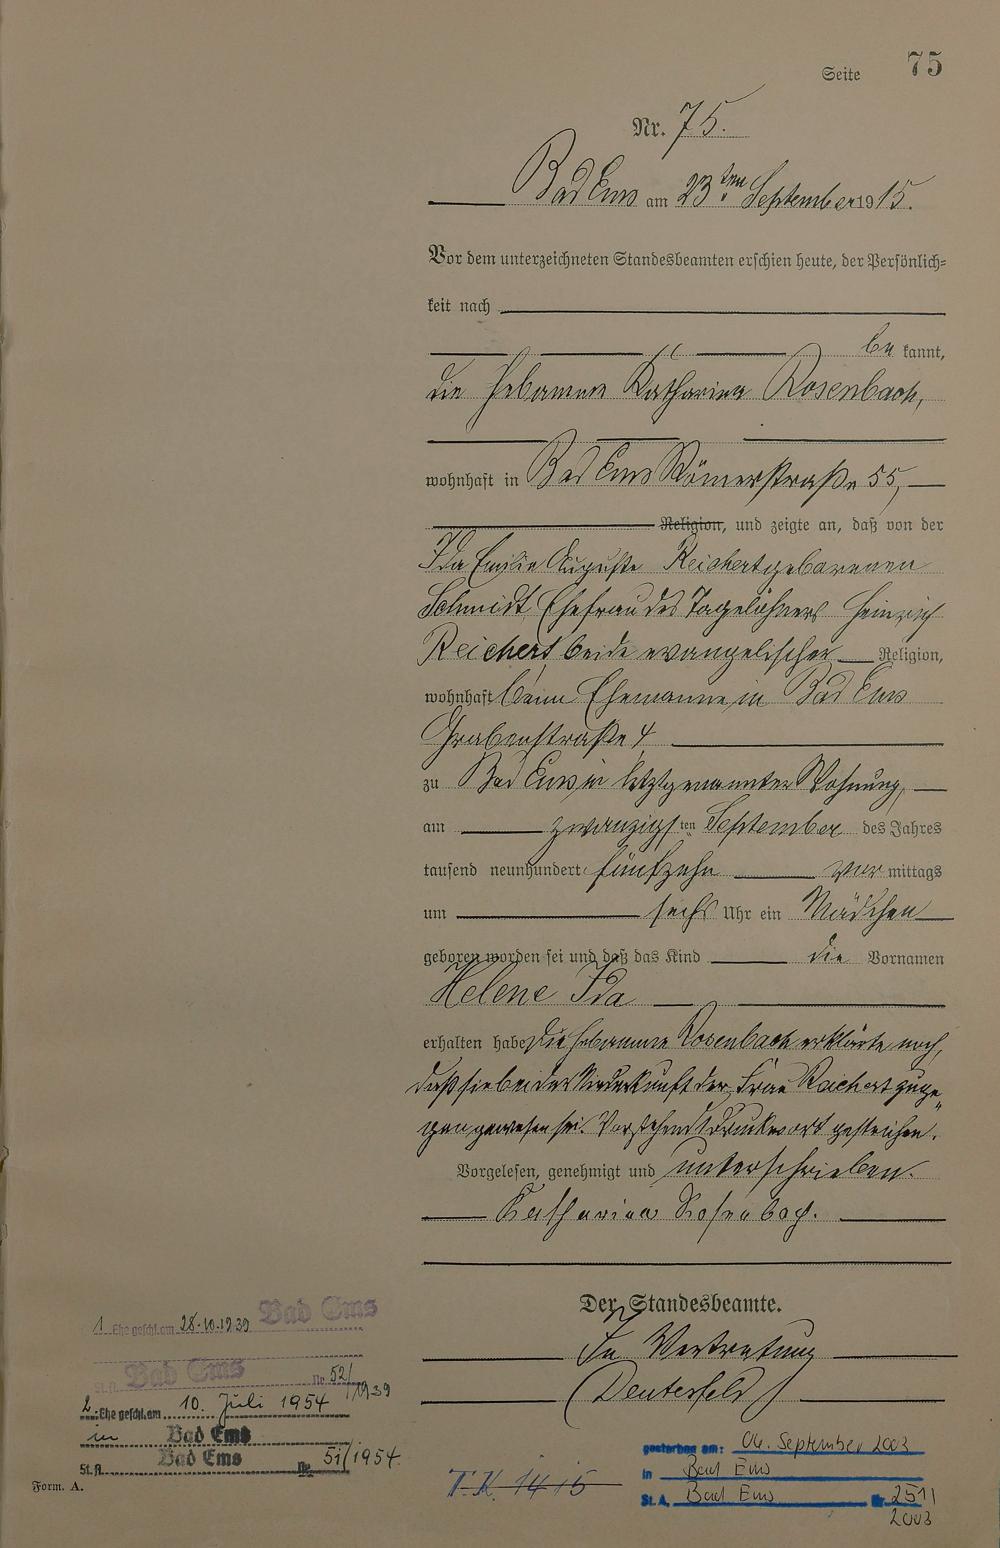 Seite 75
Nr. 75.
Bad Ems am 23ten September 1915.
Vor dem unterzeichneten Standesbeamten erschien heute, der Persönlich=
keit nach
be kannt,
die Hebamme Katharina Rosenbach,
wohnhaft in Bad Ems Römerstraße 55,
Religion, und zeigte an, daß von der
Ida Emilie Auguste Reichert geborenen
Schmidt, Ehefrau des Tagelöhners Heinrich
Reichert beide evangelischer Religion,
wohnhaft beim Ehemanne in Bad Ems
Grabenstraße 4
zu Bad Ems in letztgenannter Wohnung,
am zwanzigsten September des Jahres
tausend neunhundert fünfzehn vor mittags
um sechs Uhr ein Mädchen
geboren worden sei und daß das Kind die Vornamen
Helene Ida
erhalten habe. Die Hebamme Rosenbach erklärte noch,
daß sie bei der Niederkunft der Frau Reichert zuge=
gen gewesen sei. Vorstehend 1 Druckwort gestrichen.
Vorgelesen, genehmigt und unterschrieben.
Katharina Rosenbach.
Der Standesbeamte.
In Vertretung
1 Ehe geschl. am 28.10.1939 Bad Ems
St. A. Bad Ems Nr. 52/1939
2. Ehe geschl. am 10. Juli 1954
in Bad Ems
St. A. Bad Ems Nr. 51/1954.
Form. A.
T. K. 14 15
gestorben am: 06. September 2003
in Bad Ems
St. A. Bad Ems Nr. 251/
2003